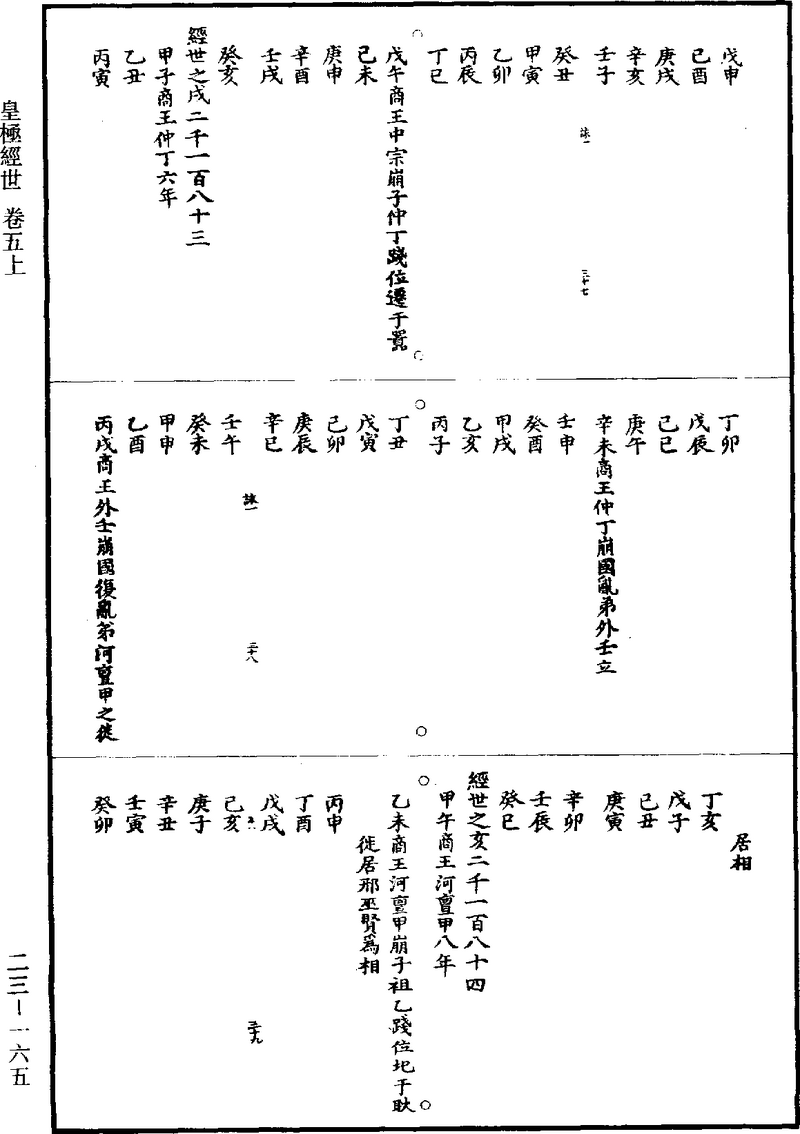 戊申
己酉
庚戌
辛亥
壬子
癸丑
甲寅
乙卯
丙辰
丁巳
戊午商王中宗崩子仲丁踐位遷于囂
己未
庚申
辛酉
壬戌
癸亥
經世之戌二千一百八十三
甲子商王仲丁六年
乙丑
丙寅
三十七
丁卯
戊辰
己巳
庚午
辛未商王仲丁崩國亂弟外壬立
壬申
癸酉
甲戌
乙亥
丙子
丁丑
戊寅
己卯
庚辰
辛巳
壬午
癸未
甲申
乙酉
丙戌商王外壬崩國復亂弟河亶甲之徙
三十八
居相
丁亥
戊子
己丑
庚寅
辛卯
壬辰
癸巳
經世之亥二千一百八十四
甲午商王河亶甲八年
乙未商王河亶甲崩子祖乙踐位圮于耿
徙居邢巫賢為相
丙申
丁酉
戊戌
己亥
庚子
辛丑
壬寅
癸卯
三十九
皇極經世 卷五上
二三－一六五